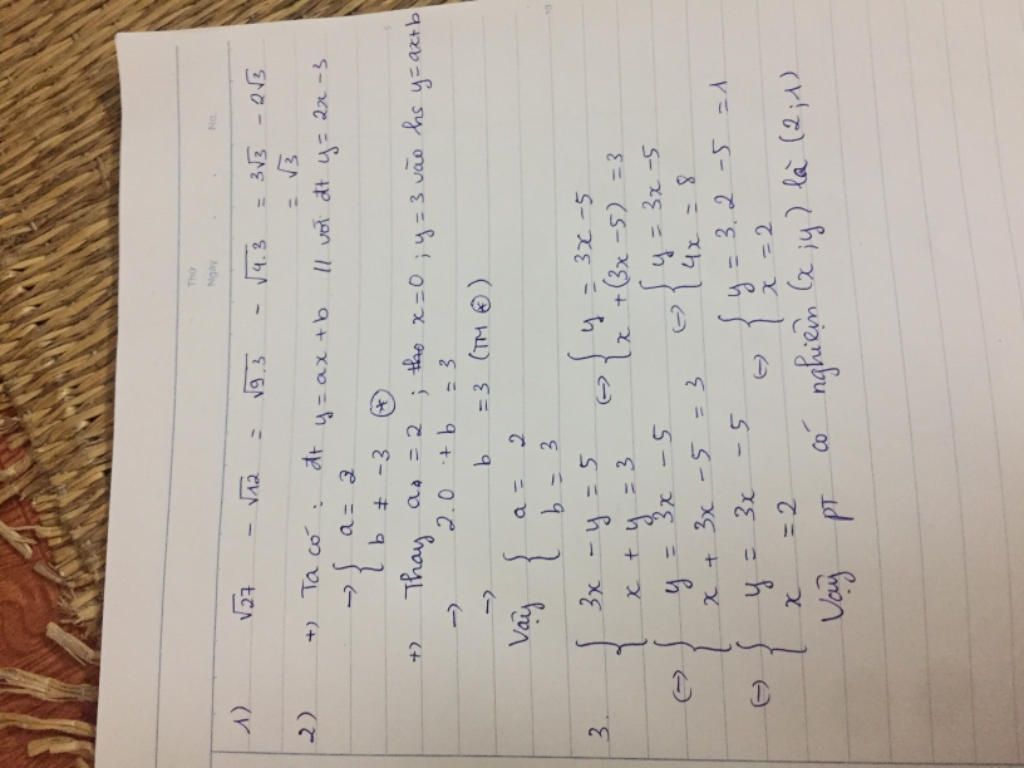 Thứ
Ngày No.
1) √27 - √12 = √9.3 - √4.3 = 3√3 - 2√3
= √3
2) +) Ta có: đt y = ax + b // với đt y = 2x - 3
→ { a = 2
{ b ≠ -3 (*)
+) Thay a = 2 ; x = 0 ; y = 3 vào hs y = ax + b
→ 2.0 + b = 3
→ b = 3 (TM (*))
Vậy { a = 2
{ b = 3
3. { 3x - y = 5 ⇔ { y = 3x - 5
{ x + y = 3 { x + (3x - 5) = 3
⇔ { y = 3x - 5 ⇔ { y = 3x - 5
{ x + 3x - 5 = 3 { 4x = 8
⇔ { y = 3x - 5 ⇔ { y = 3.2 - 5 = 1
{ x = 2 { x = 2
Vậy PT có nghiệm (x ; y) là (2 ; 1)